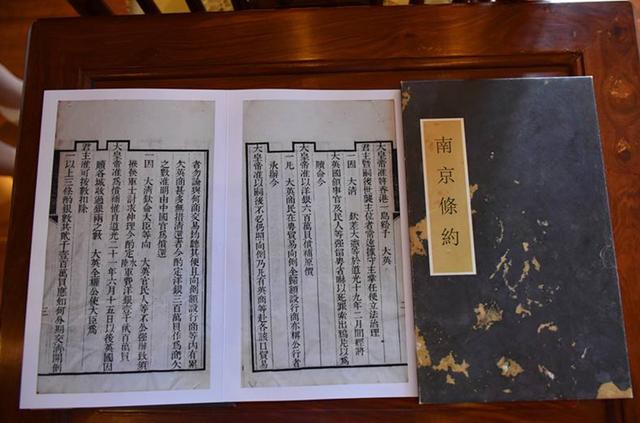 南京條約
大皇帝准將香港一島給予 大英
君主暨嗣後世襲主位者常遠據守主掌任便立法治理
一因 大清 欽差大憲等於道光十九年二月間經將
大英國領事官及民人等強留粵省嚇以死罪索出鴉片以為
贖命今
大皇帝准以洋銀六百萬員償補原價
一凡 大英商民在粵貿易向例全歸額設行商亦稱公行者
承辦今
大皇帝准以嗣後不必仍照向例乃凡有英商等赴各該口貿易
者勿論與何商交易均聽其便且向例額設行商等內有累
欠英商甚多無措清還者今酌定洋銀三百萬員作為商欠
之數准明由中國官為償還
一因 大清欽命大臣等向 大英官民人等不公強辦致須
撥發軍士討求伸理今酌定水陸軍費洋銀壹千貳百萬員
大皇帝准為償補惟自道光二十一年六月十五日以後英國因
贖各城收過銀兩之數 大英全權公使大臣為
君主准可按數扣除
一以上三條酌銀數共貳千壹百萬員應如何分期交清開列